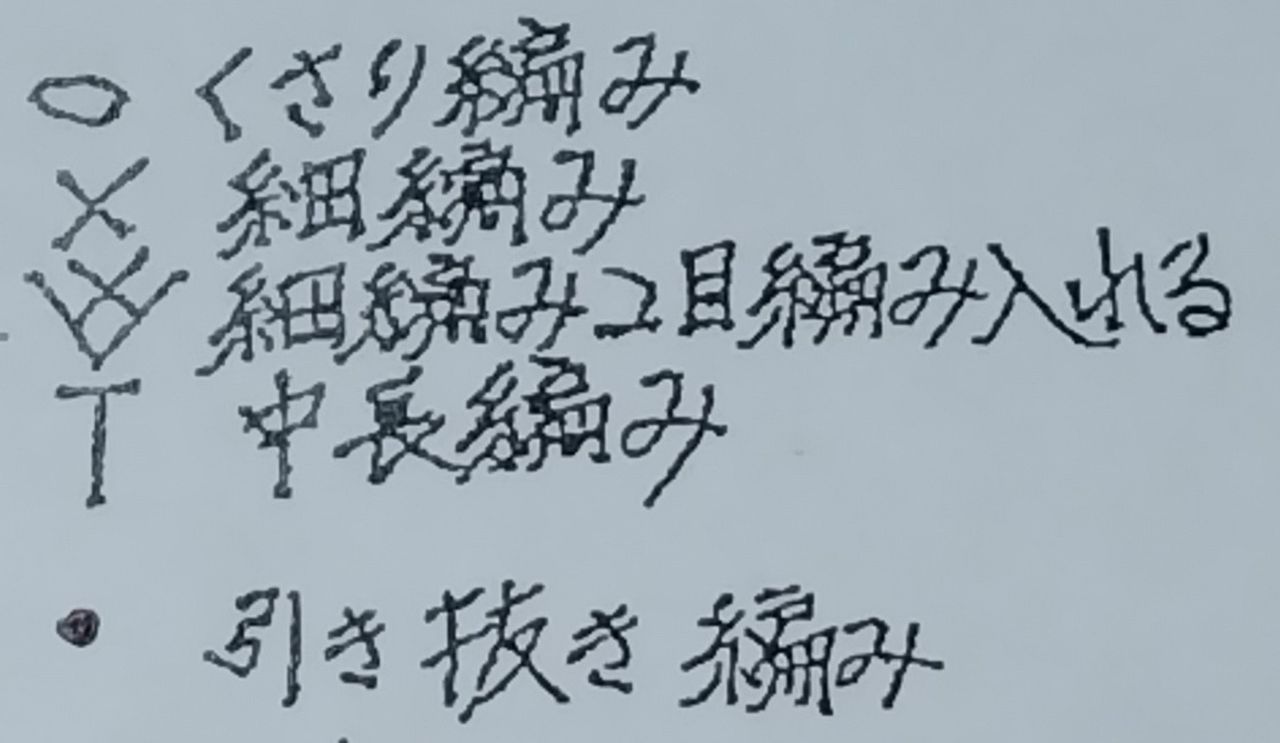 くさり編み
細編み
細編み2目編み入れる
中長編み
引き抜き編み